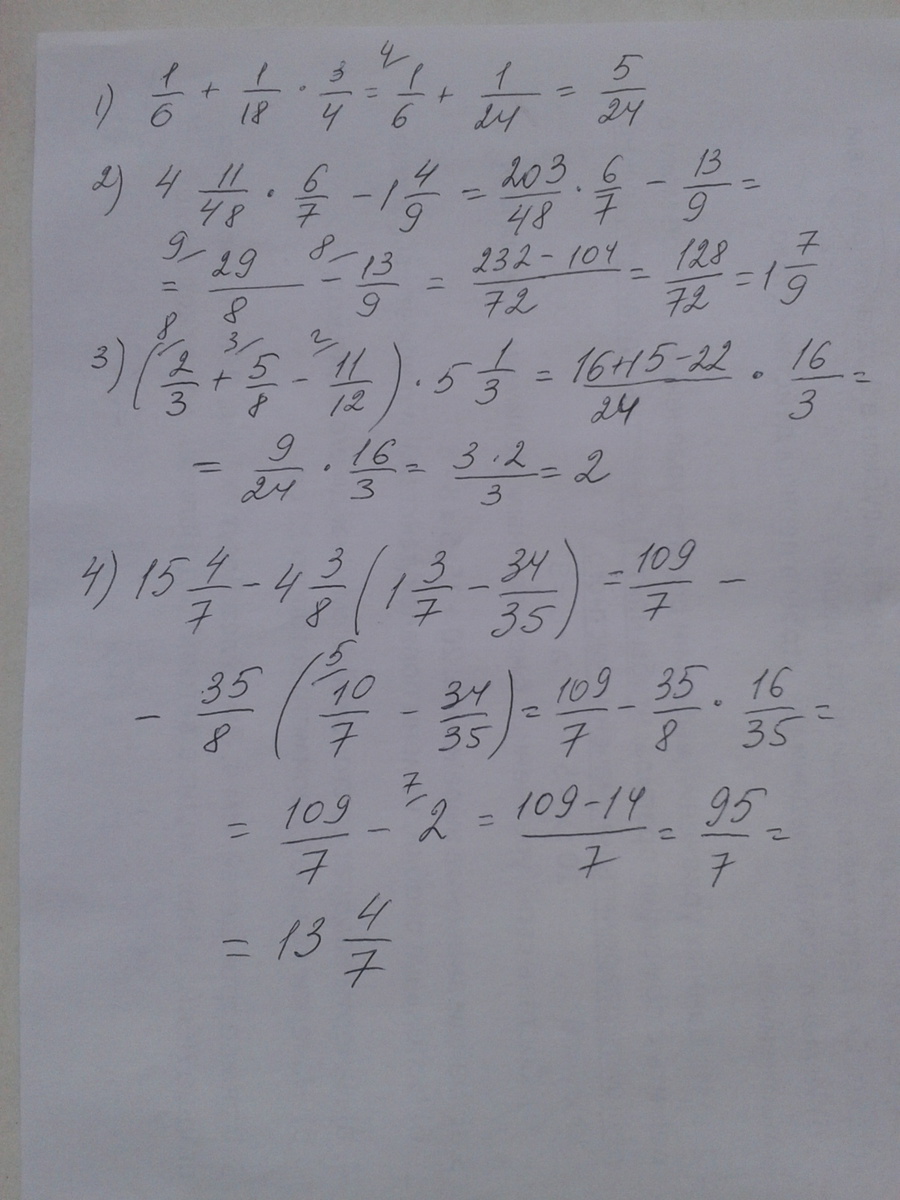 1) 1/6 + 1/18 · 3/4 = 4/ 1/6 + 1/24 = 5/24
2) 4 11/48 · 6/7 - 1 4/9 = 203/48 · 6/7 - 13/9 =
= 9/ 29/8 - 8/ 13/9 = (232 - 104)/72 = 128/72 = 1 7/9
3) (8/ 2/3 + 3/ 5/8 - 2/ 11/12) · 5 1/3 = (16+15-22)/24 · 16/3 =
= 9/24 · 16/3 = (3 · 2)/3 = 2
4) 15 4/7 - 4 3/8 (1 3/7 - 34/35) = 109/7 -
- 35/8 (5/ 10/7 - 34/35) = 109/7 - 35/8 · 16/35 =
= 109/7 - 7/ 2 = (109 - 14)/7 = 95/7 =
= 13 4/7